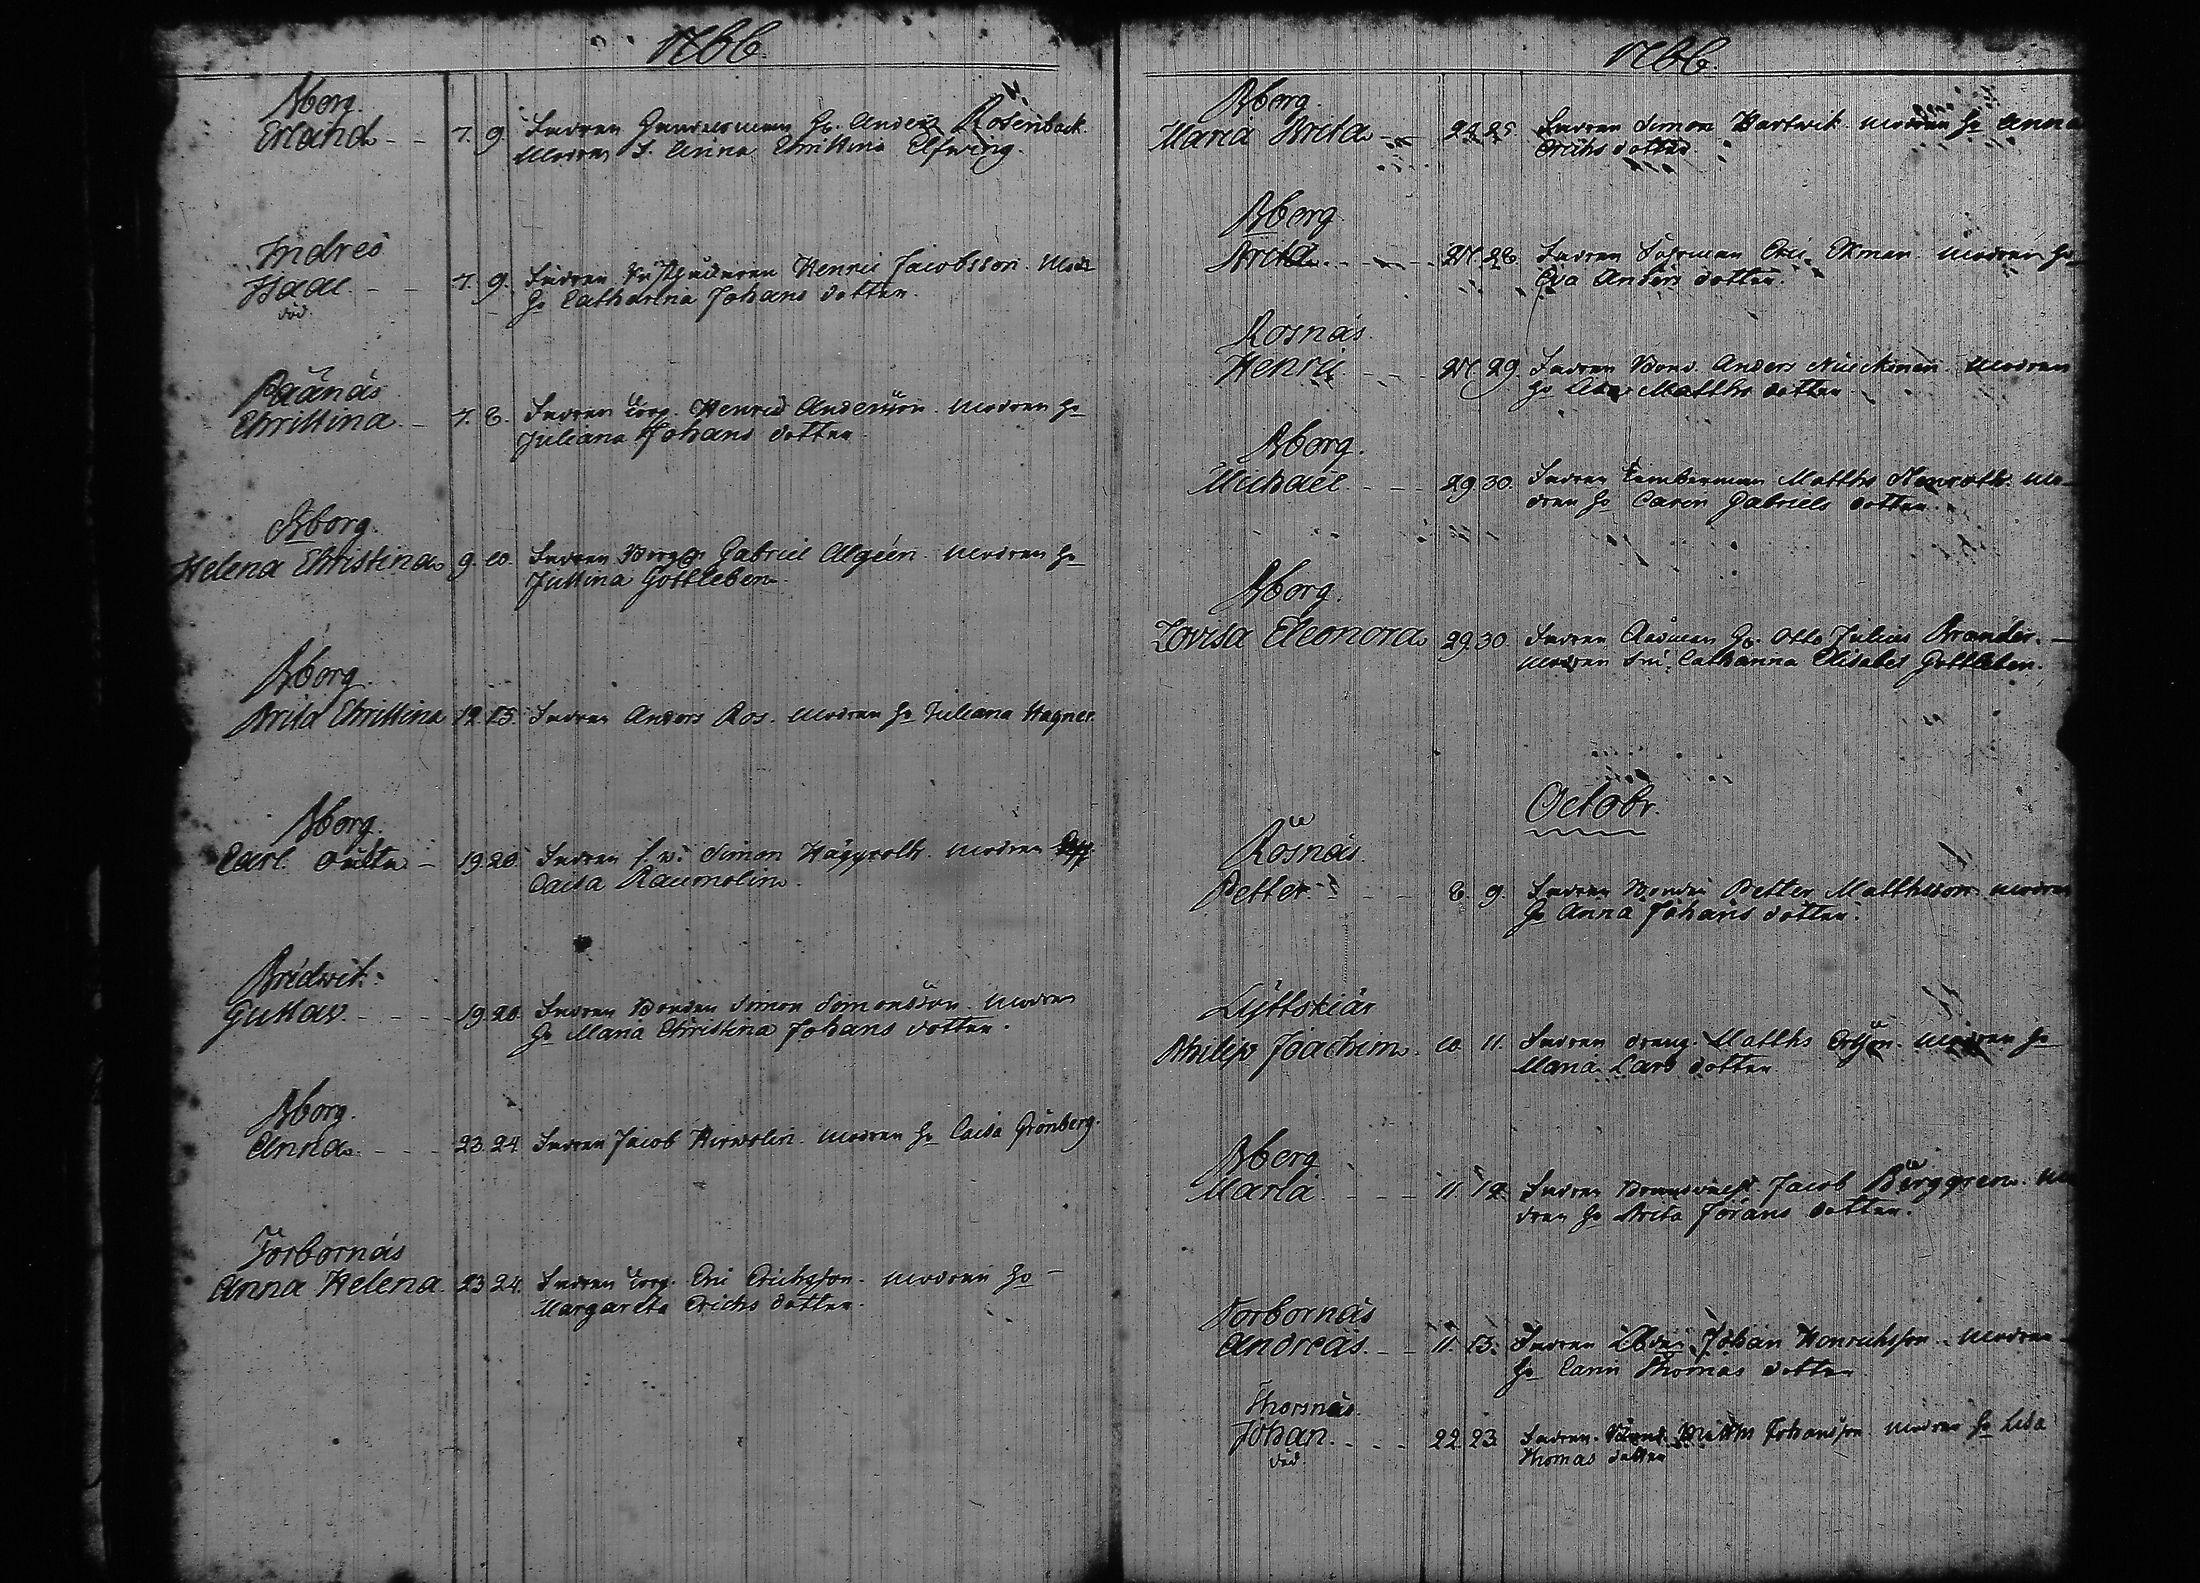 1766.
Bborg.
Erland - - 7. 9. Fadren Handelsman Hr. Anders Rosenback.
Modren F. Anna Christina Elfwing.
Indres
Isaac - - 7. 9. Fadren Henric Jacobsson. Modr
Ho Catharina Johans dotter.
död.
Räänäs
Christina - 7. 8. Fadren Torp. Henric Andersson. modren Ho
Juliana Johans dotter.
Bborg.
Helena Christina 9. 10. Fadren Borg. Gabriel Algeen. modren Ho
Justina Gottleben.
Bborg.
Brita Christina 12. 13. Fadren Anders Ros. modren Ho Juliana Hagner.
Bborg.
Carl 19. 20. Fadren Simon Häggroth. modren
Caisa Raumolin.
Bridwik.
Gustav. - - - 19. 20. Fadren Bonden Simon Simonsson. modren
Ho Maria Christina Johans dotter.
Bborg.
Anna. - - - 23. 24. Fadren Jacob modren Ho Caisa Grönberg.
Torbornäs
Anna Helena. 23. 24. Fadren Torp. Eric Erichsson. modren Ho
Margareta Erichs dotter.
1766.
Bborg.
Maria Brita - - 24. 25. Fadren Simon Hartwik. modren Ho Anna
Erichs dotter.
Bborg
Brita. - - - 27. 28. Fadren Eric Ekman. modren Ho
Eva Anders dotter.
Rosnäs
Henric - - - 27. 29. Fadren Bond. Anders modren
Ho Matths dotter
Bborg.
Michael - - 29. 30. Fadren Timberman Matths mo-
dren Ho Carin Gabriels dotter.
Bborg.
Lovisa Eleonora 29. 30. Fadren Rådman Hr. Otto Julius Brander. -
modren Fru Catharina Elisabet Gottleben.
Octobr.
Rosnäs
Petter. - - - 8. 9. Fadren Bonden Petter Matthsson. modren
Ho Anna Johans dotter.
Lyttskiär
Philip Joachim. 10. 11. Fadren dreng. Matths modren Ho
Maria Lars dotter
Bborg
Maria. - - - 11. 12. Fadren Jacob Berggren. mo
dren Ho Brita Jörans dotter.
Torbornäs
Andreas. - - 11. 13. Fadren Johan Henrichsson. modren
Ho Carin Thomas dotter
Thorsnäs.
Johan. - - - 22. 23. Fadren Bond. Matths Johansson. modren Ho Lisa
Thomas dotter
död.